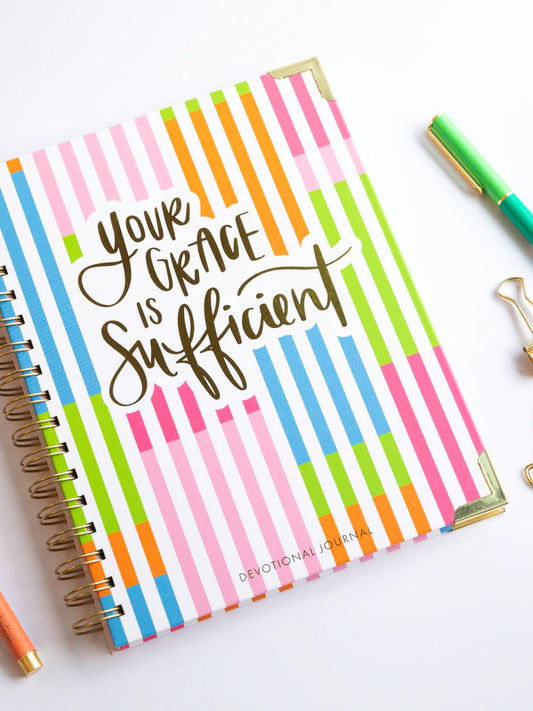 YOUR
GRACE
IS
Sufficient
DEVOTIONAL JOURNAL